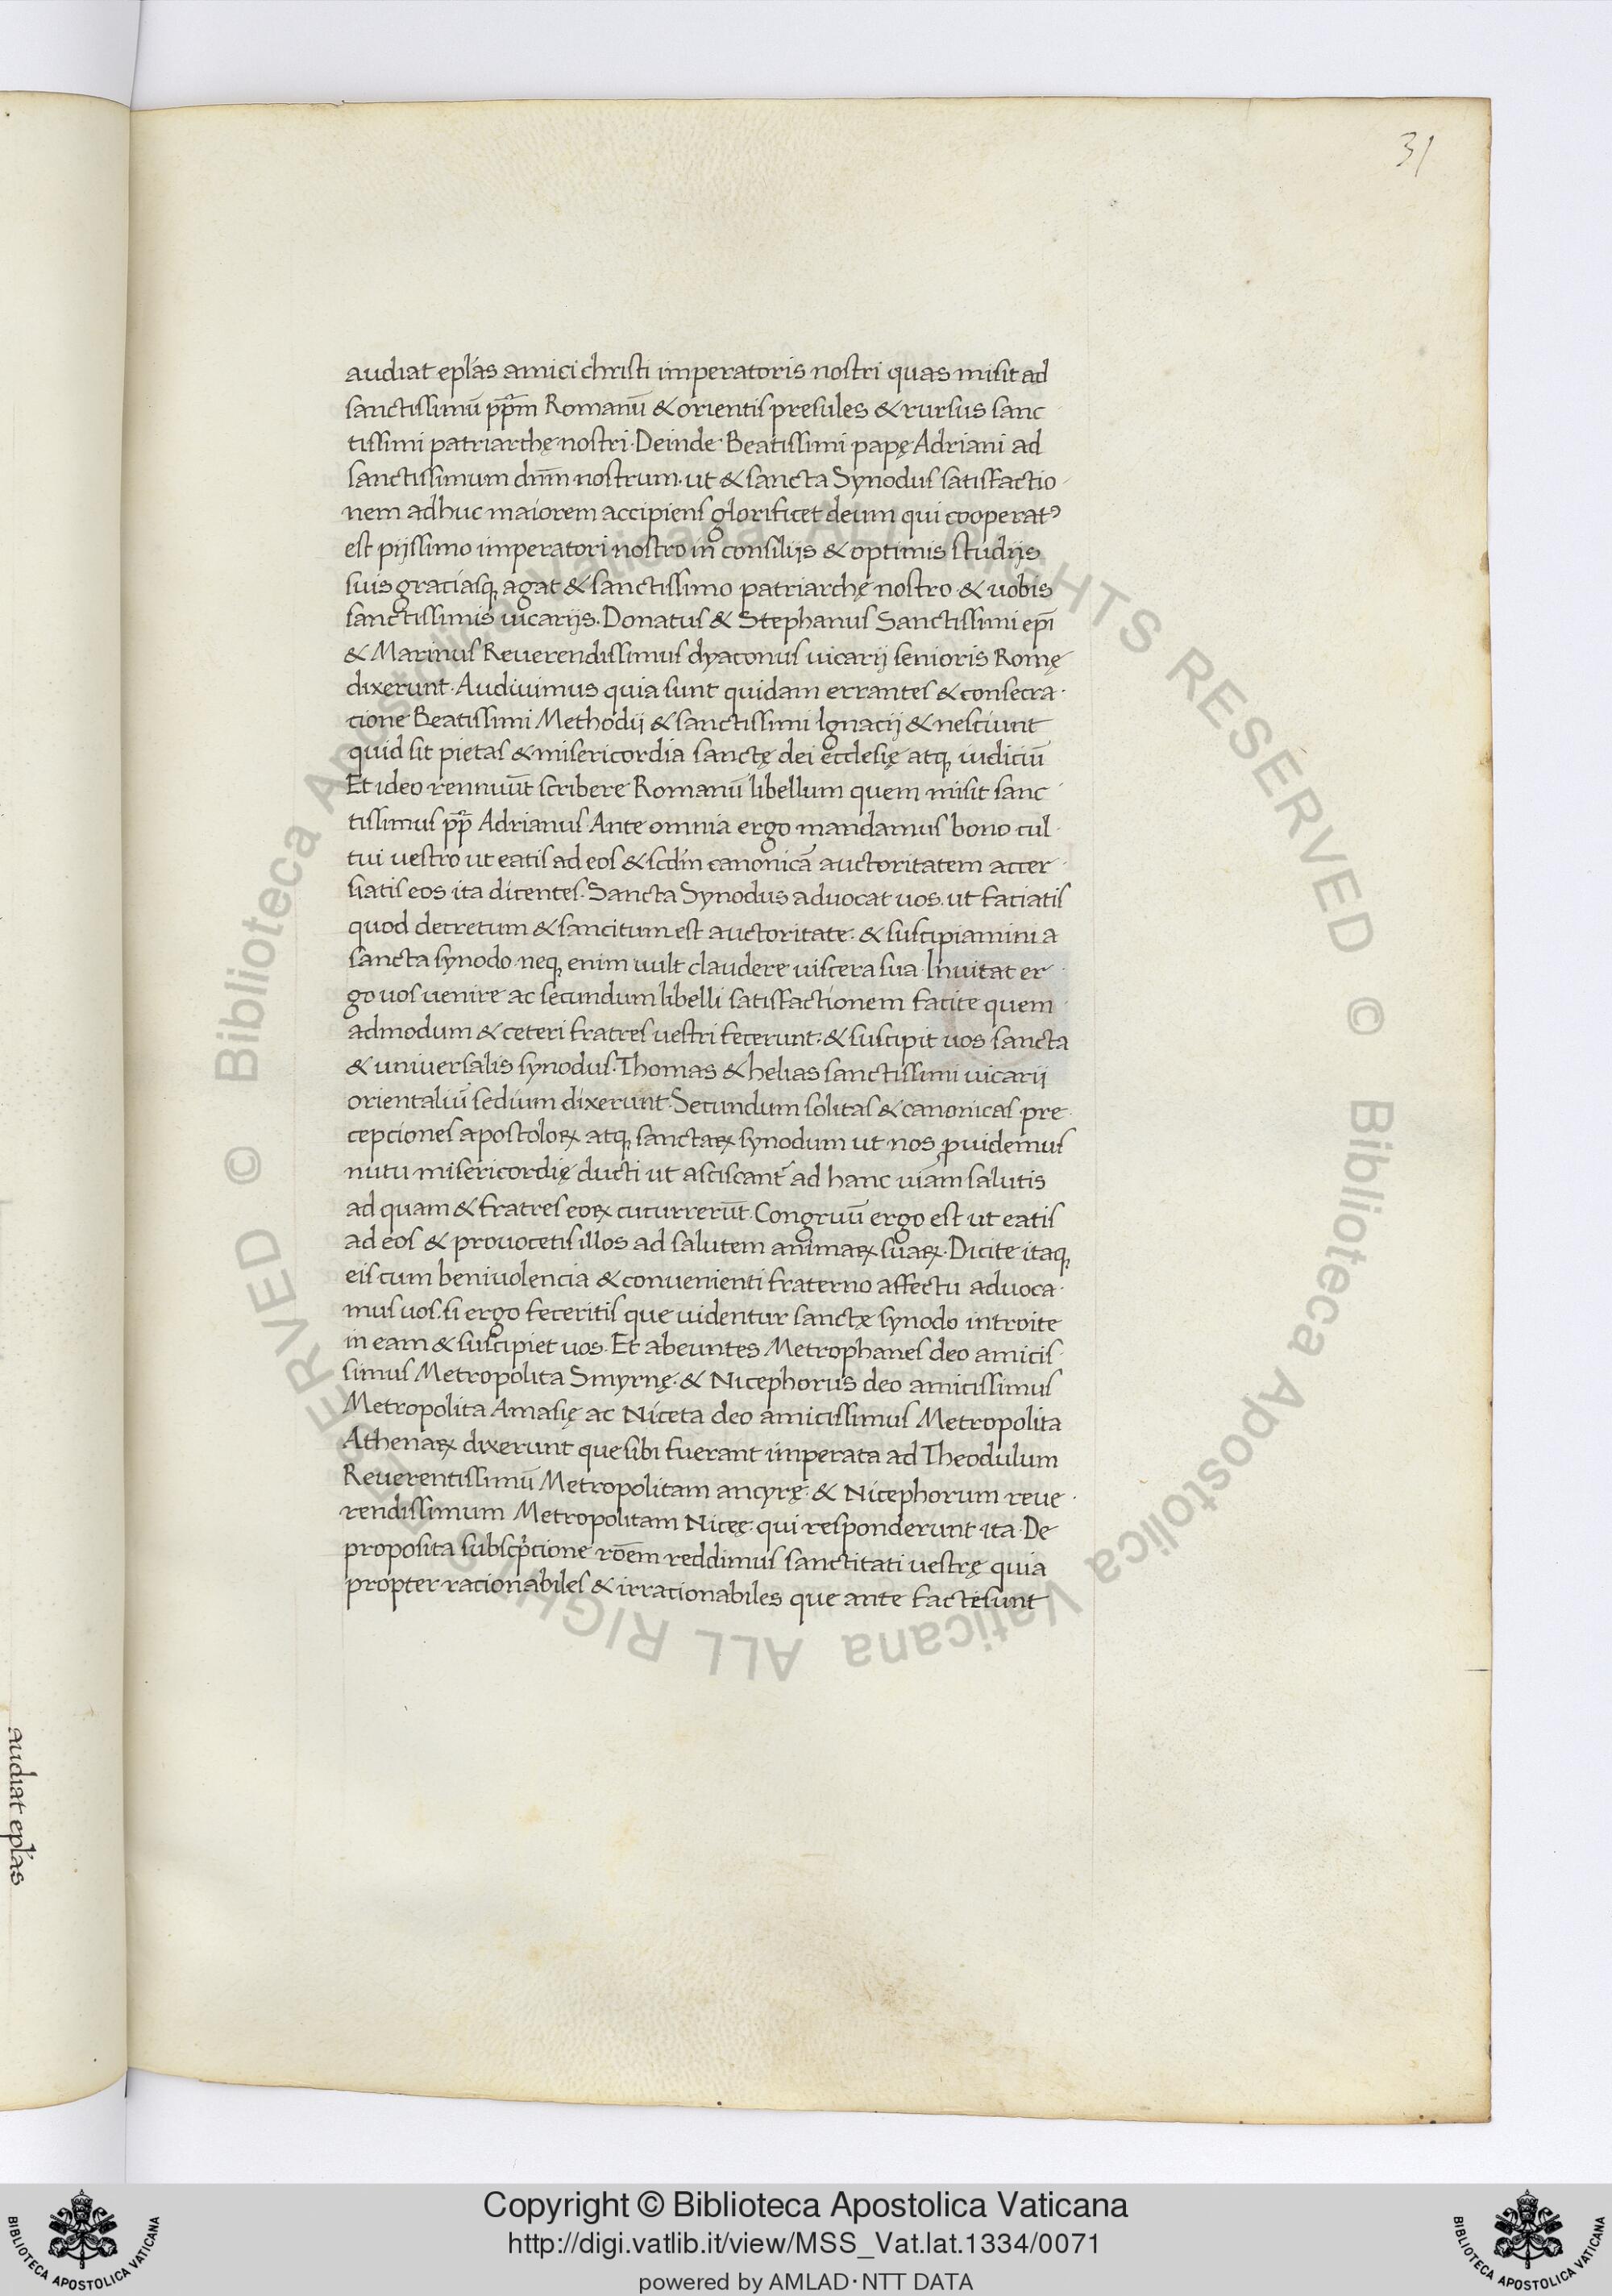 31
audiat epl̃as amici christi imperatoris nostri quas misit ad
sanctissimū pp̄m Romanū & orientis presules & rursus sanc
tissimi patriarchę nostri. Deinde Beatissimi papę Adriani ad
sanctissimum dn̄m nostrum. ut & sancta Synodus satisfactio
nem adhuc maiorem accipiens glorificet deum qui cooperatꝰ
est pijssimo imperatori nostro in consilijs & optimis studijs
suis graciasqꝫ agat & sanctissimo patriarchę nostro & uobis
sanctissimis uicarijs. Donatus & Stephanus Sanctissimi ep̄i
& Marinus Reuerendissimus dyaconus uicarij senioris Romę
dixerunt. Audiuimus quia sunt quidam errantes & consecra
cione Beatissimi Methodij & sanctissimi Ignacij & nesciunt
quid sit pietas & misericordia sanctę dei ecclesię atqꝫ iudiciū
Et ideo rennuūt scribere Romanū libellum quem misit sanc
tissimus pp̄ Adrianus. Ante omnia ergo mandamus bono cul
tui uestro ut eatis ad eos & scd̄m canonicā auctoritatem accer
siatis eos ita dicentes. Sancta Synodus aduocat uos. ut faciatis
quod decretum & sancitum est auctoritate. & suscipiamini a
sancta synodo. neqꝫ enim uult claudere uiscera sua. Inuitat er
go uos uenire ac secundum libelli satisfactionem facite quem
admodum & ceteri fratres uestri fecerunt. & suscipit uos sancta
& uniuersalis synodus. Thomas & helias sanctissimi uicarii
orientaliū sedium dixerunt. Secundum solitas & canonicas pre
cepciones apostoloꝝ atqꝫ sanctaꝝ synodum ut nos ꝓuidemus
nutu misericordię ducti ut asciscant᷑ ad hanc uiam salutis
ad quam & fratres eoꝝ cucurrerūt. Congruū ergo est ut eatis
ad eos & prouocetis illos ad salutem animaꝝ suaꝝ. Dicite itaqꝫ
eis cum beniuolencia & conuenienti fraterno affectu aduoca
mus uos. si ergo feceritis que uidentur sanctæ synodo introite
in eam & suscipiet uos. Et abeuntes Metrophanes deo amicis
simus Metropolita Smyrnę. & Nicephorus deo amicissimus
Metropolita Amasię ac Niceta deo amicissimus Metropolita
Athenaꝝ dixerunt que sibi fuerant imperata ad Theodulum
Reuerentissimū Metropolitam ancyrę. & Nicephorum reue
rendissimum Metropolitam Nicęę. qui responderunt ita. De
proposita subscp̄cione rōem reddimus sanctitati uestrę quia
propter racionabiles & irracionabiles que ante factę sunt
audiat epl̃as
© Biblioteca Apostolica Vaticana ALL RIGHTS RESERVED © Biblioteca Apostolica Vaticana ALL RIGHTS RESERVED
Copyright © Biblioteca Apostolica Vaticana
http://digi.vatlib.it/view/MSS_Vat.lat.1334/0071
powered by AMLAD·NTT DATA
BIBLIOTECA APOSTOLICA VATICANA
BIBLIOTECA APOSTOLICA VATICANA